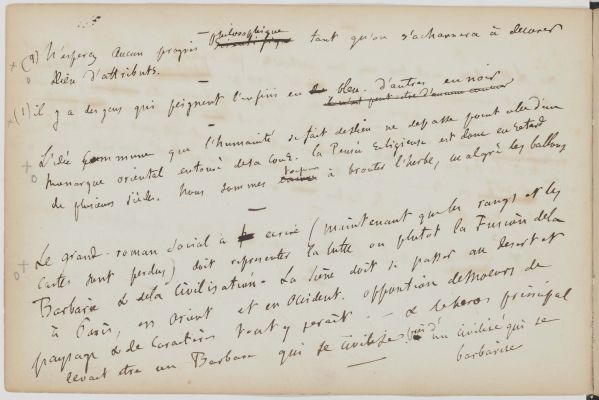 philosophique
x (2) N'esperez aucun progrès scientifique tant qu'on s'acharnera à décorer
Dieu d'attributs.
x (1) il y a des gens qui peignent l'infini en bleu. d'autres en noir
L'idée commune que l'humanité se fait de dieu ne depasse point celle d'un
monarque oriental entouré de sa cour. la Pensée Religieuse est donc en retard
de plusieurs siècles. Nous sommes toujours à brouter l'herbe, malgré les ballons
Le grand roman social à ecrire (maintenant que les rangs et les
castes sont perdus) doit représenter la lutte ou plutôt la Fusion de la
Barbarie & de la Civilisation. La scène doit se passer au desert et
à Paris, en Orient et en Occident. opposition de moeurs de
paysage & de caractères tout y serait. — & le heros principal
devrait être un Barbare qui se civilise près d'un civilisé qui se
barbarise